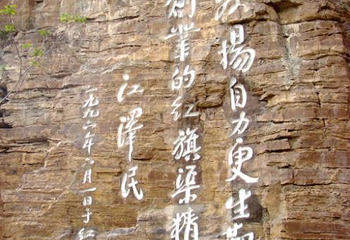 揚自力更生
創業的红旗渠精
江澤民
一九九六年六月一日于红